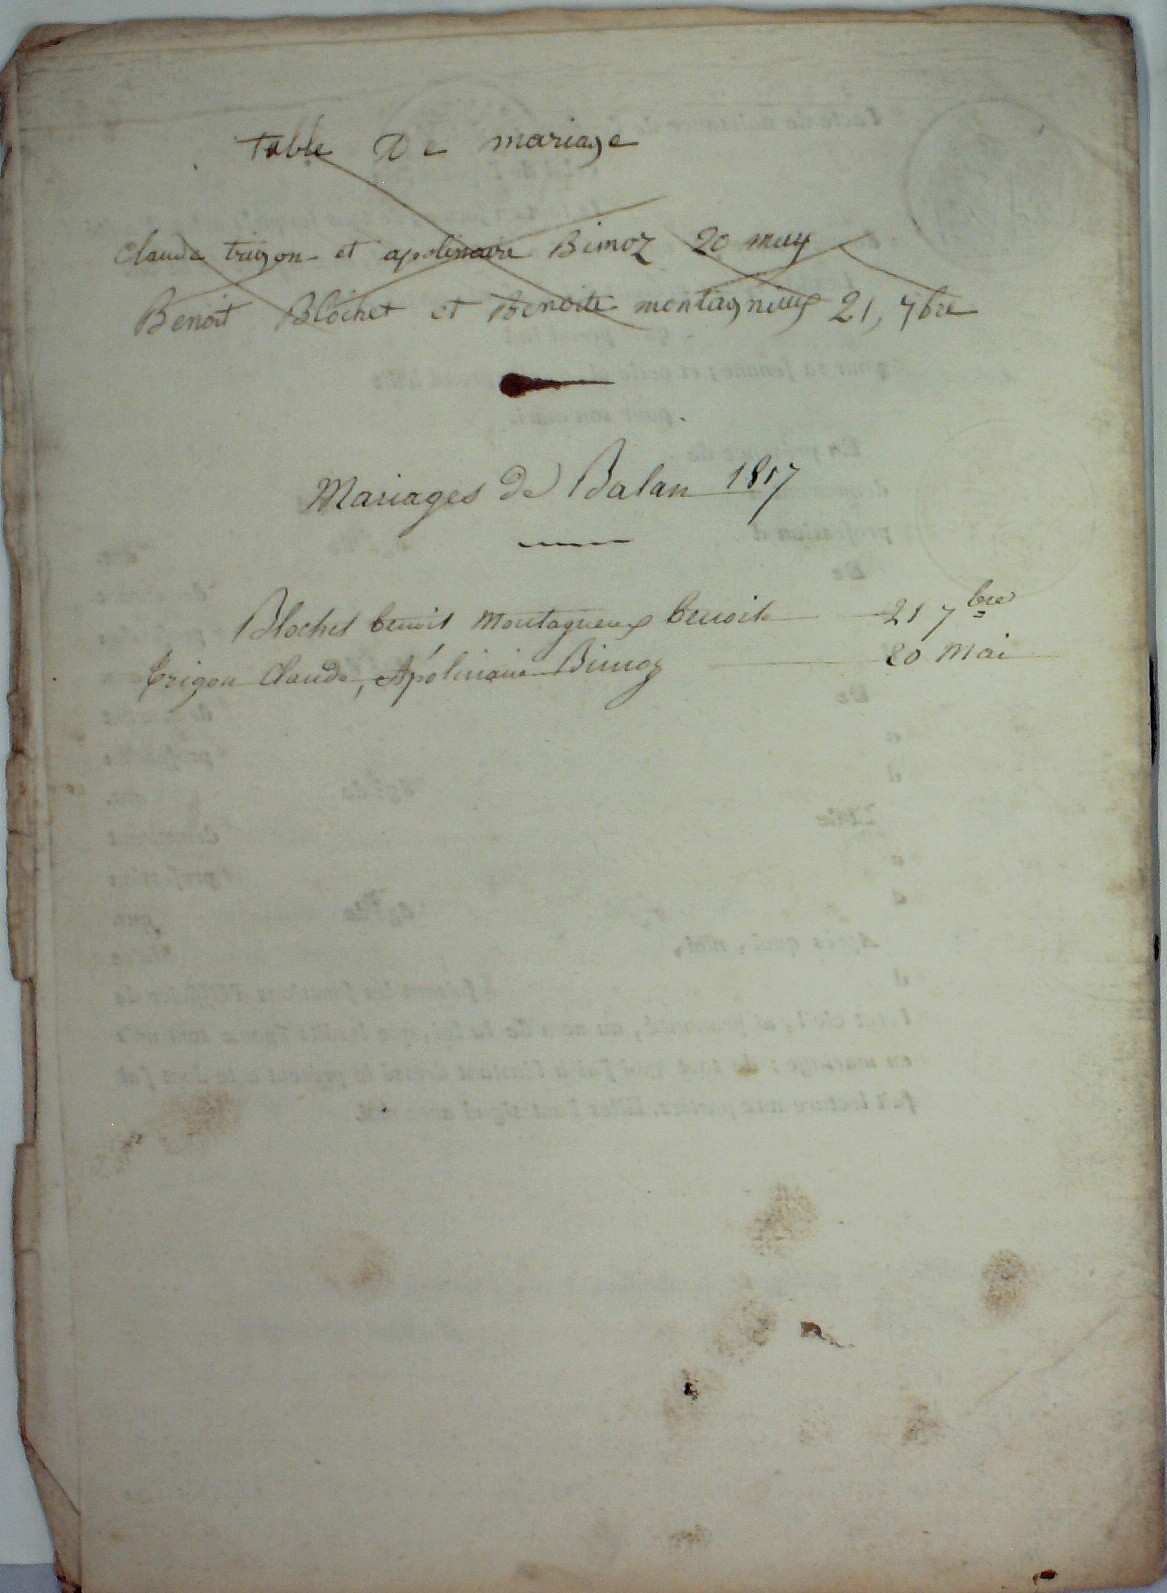 Table De mariage
Claude trigon et apolinaire Bimoz 20 may
Benoit Blochet et Benoite montagnieux 21, 7bre
Mariages de Balan 1817
Blochet benoit Montagneux benoite 21 7bre
Trigon Claude, Apolinaire Bimoz 20 Mai